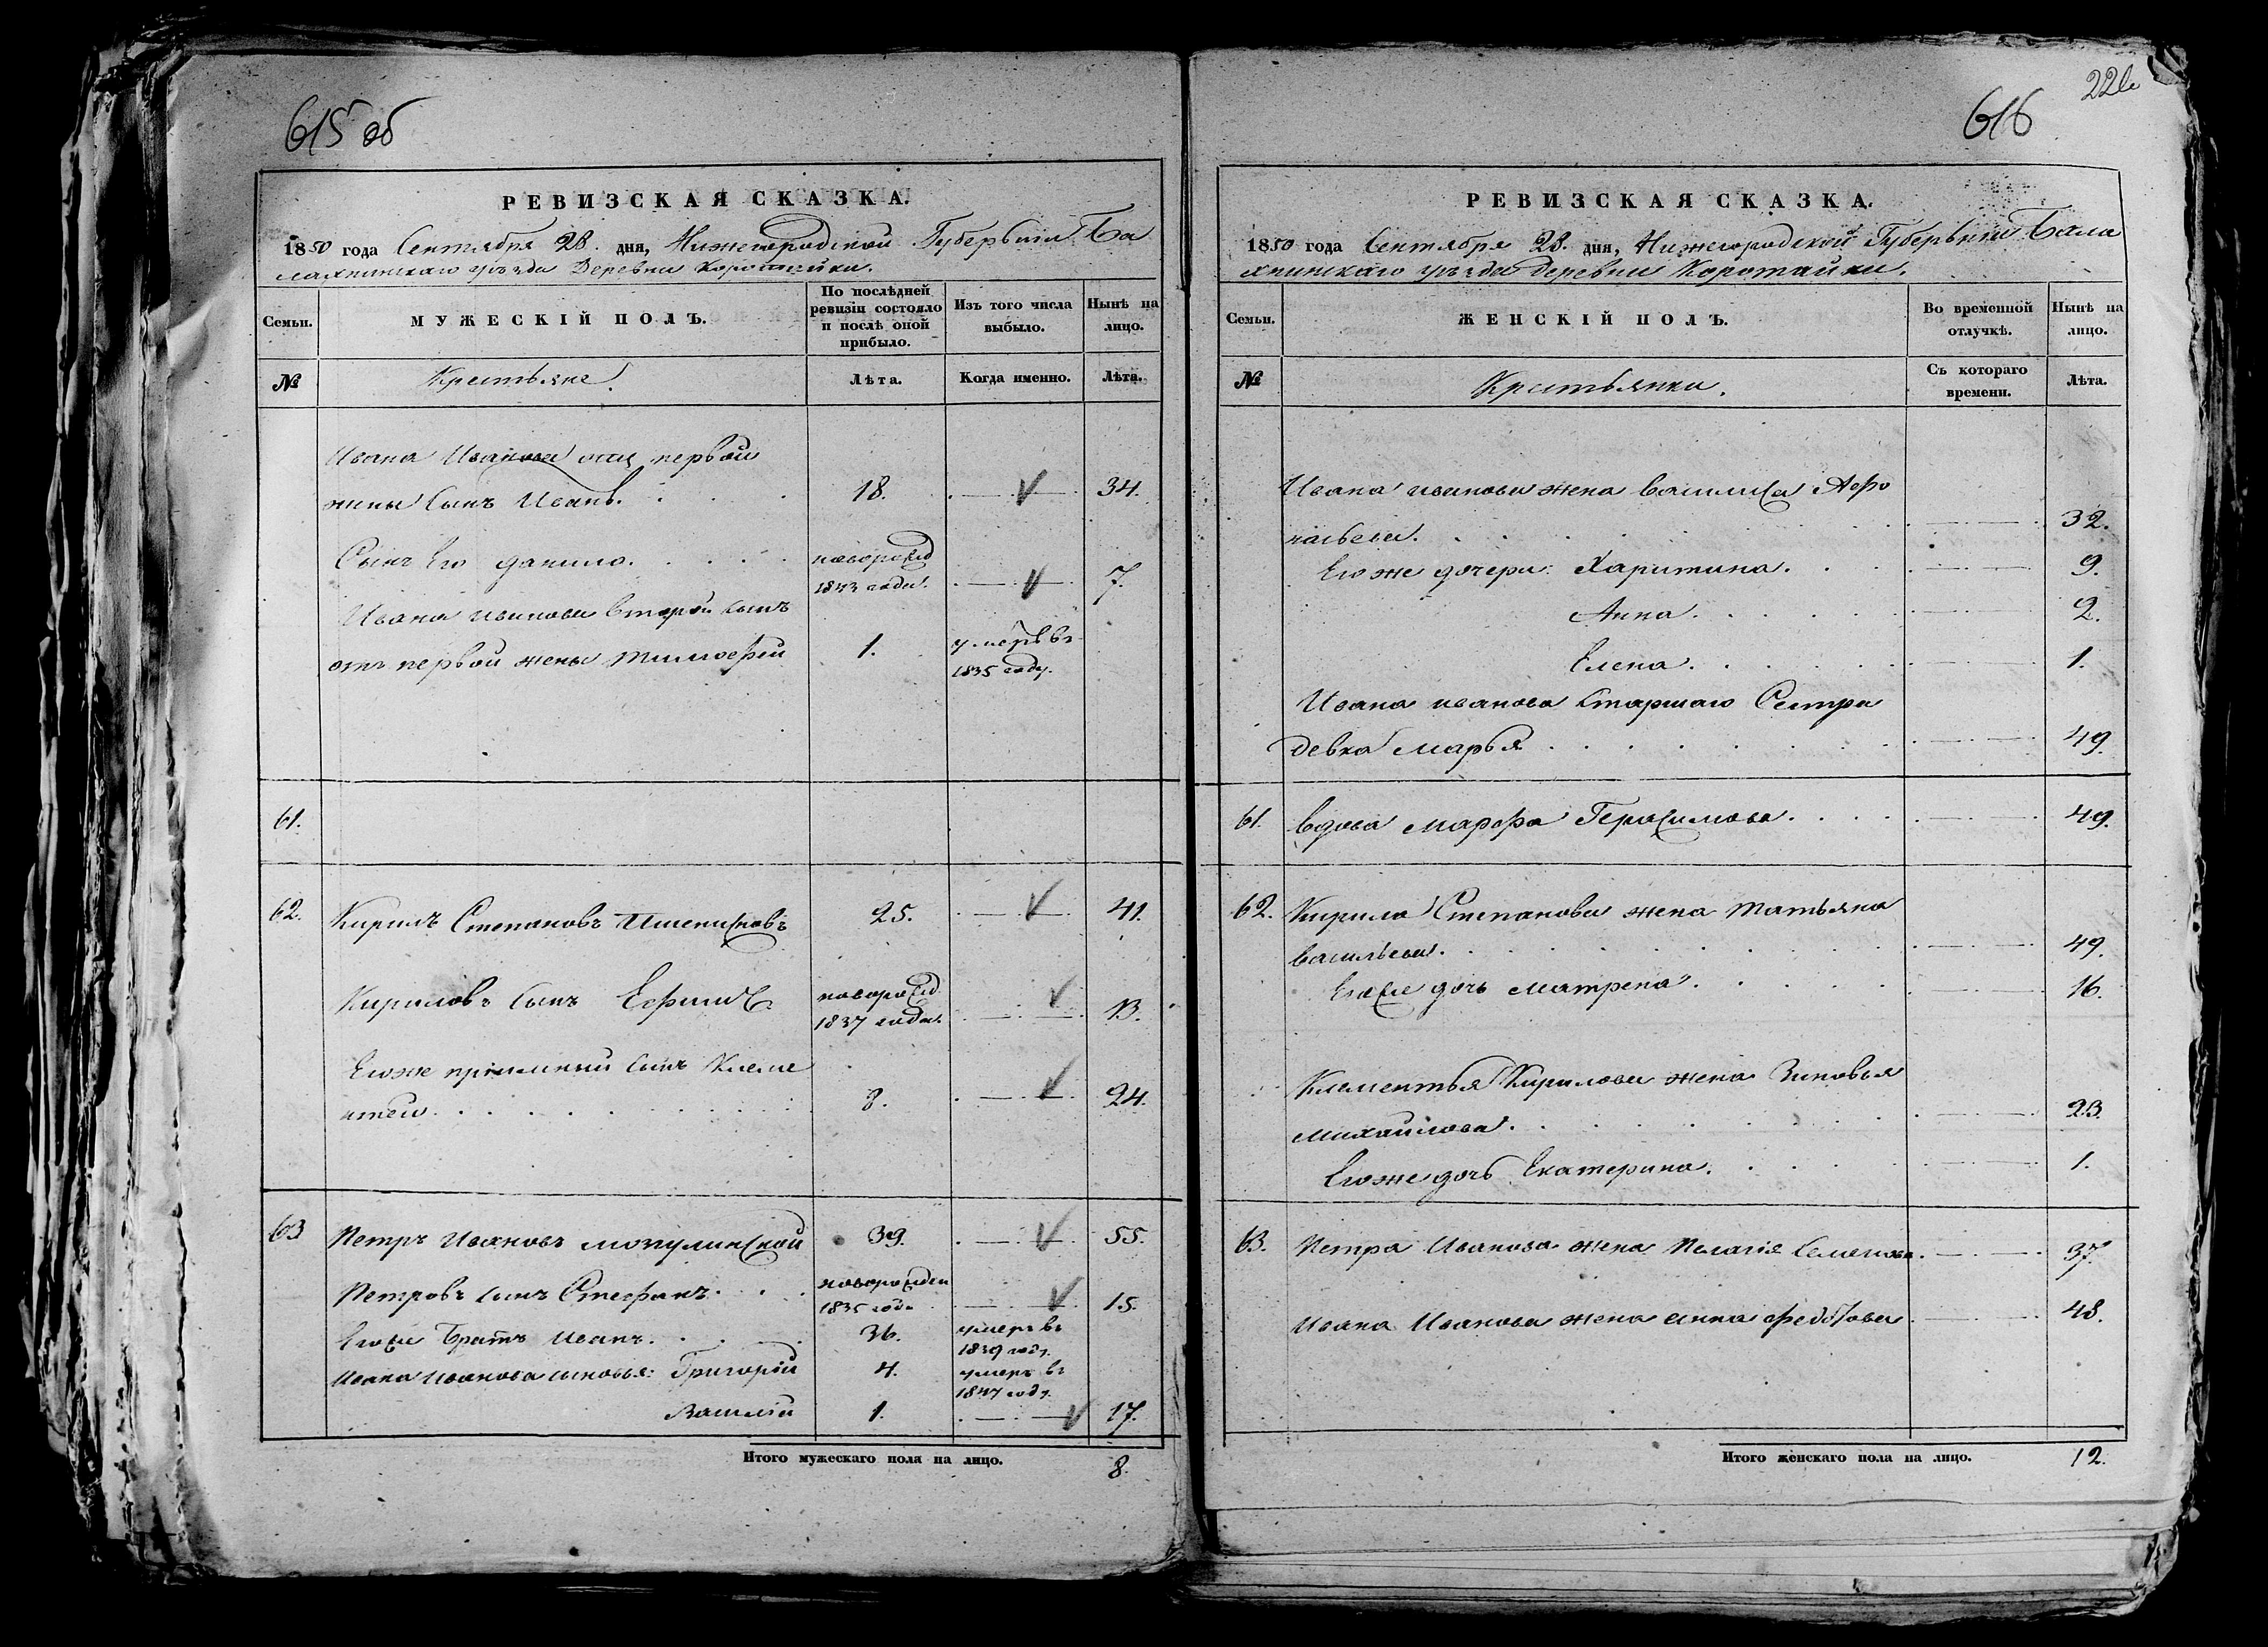 615 об
РЕВИЗСКАЯ СКАЗКА.
1850 года Сентября 28. дня, Нижегородской Губернии Ба
лахнинскаго уѣзда Деревни Коротайки.
Семьи.
МУЖЕСКІЙ ПОЛЪ.
По послѣдней ревизіи состояло и послѣ оной прибыло.
Изъ того числа выбыло.
Нынѣ на лицо.
№
Крестьяне.
Лѣта.
Когда именно.
Лѣта.
Ивана Иванова первой
жены сынъ Иванъ. 18. 34.
Сынъ Его данило. новорожд 1843 года. 7.
Ивана Иванова второй сынъ
отъ первой жены Тимофей 1. умеръ въ 1835 году.
61.
62. Кирилъ Степановъ Пшенисновъ 25. 41.
Кириловъ сынъ Ефимъ новорожд 1837 года. 13.
Егоже пріимный сынъ Клеме
нтей. 8. 24.
63 Петръ Ивановъ мозгулинской 39. 55.
Петровъ сынъ Стефанъ. новорожден 1835 года 15.
Егоже братъ Иванъ. 36. умеръ въ 1839 году.
Ивана Иванова сыновья: Григорій 4. умеръ въ 1847 году.
Василій 1. 17.
Итого мужескаго пола на лицо. 8.
616
РЕВИЗСКАЯ СКАЗКА.
1850 года Сентября 28. дня, Нижегородской Губерніи Бала
хнинскаго уѣзда деревни Коротайки.
Семьи.
ЖЕНСКІЙ ПОЛЪ.
Во временной отлучкѣ.
Нынѣ на лицо.
№
Крестьянки.
Съ котораго времени.
Лѣта.
Ивана иванова жена василиса Афо
насьева. 32.
Егоже дочери: Харитина. 9.
Анна. 2.
Елена. 1.
Ивана иванова старшаго Сестра
девка Марья 49.
61. вдова марфа Герасимова. 49.
62. Кирила Степанова жена татьяна
васильева. 49.
Егоже дочь матрена. 16.
Клементья Кирилова жена Зиновья
михайлова. 23.
Егоже дочь Екатерина. 1.
63. Петра Иванова жена Пелагія семенова 37.
Ивана Иванова жена анна федотова 48.
Итого женскаго пола на лицо. 12.